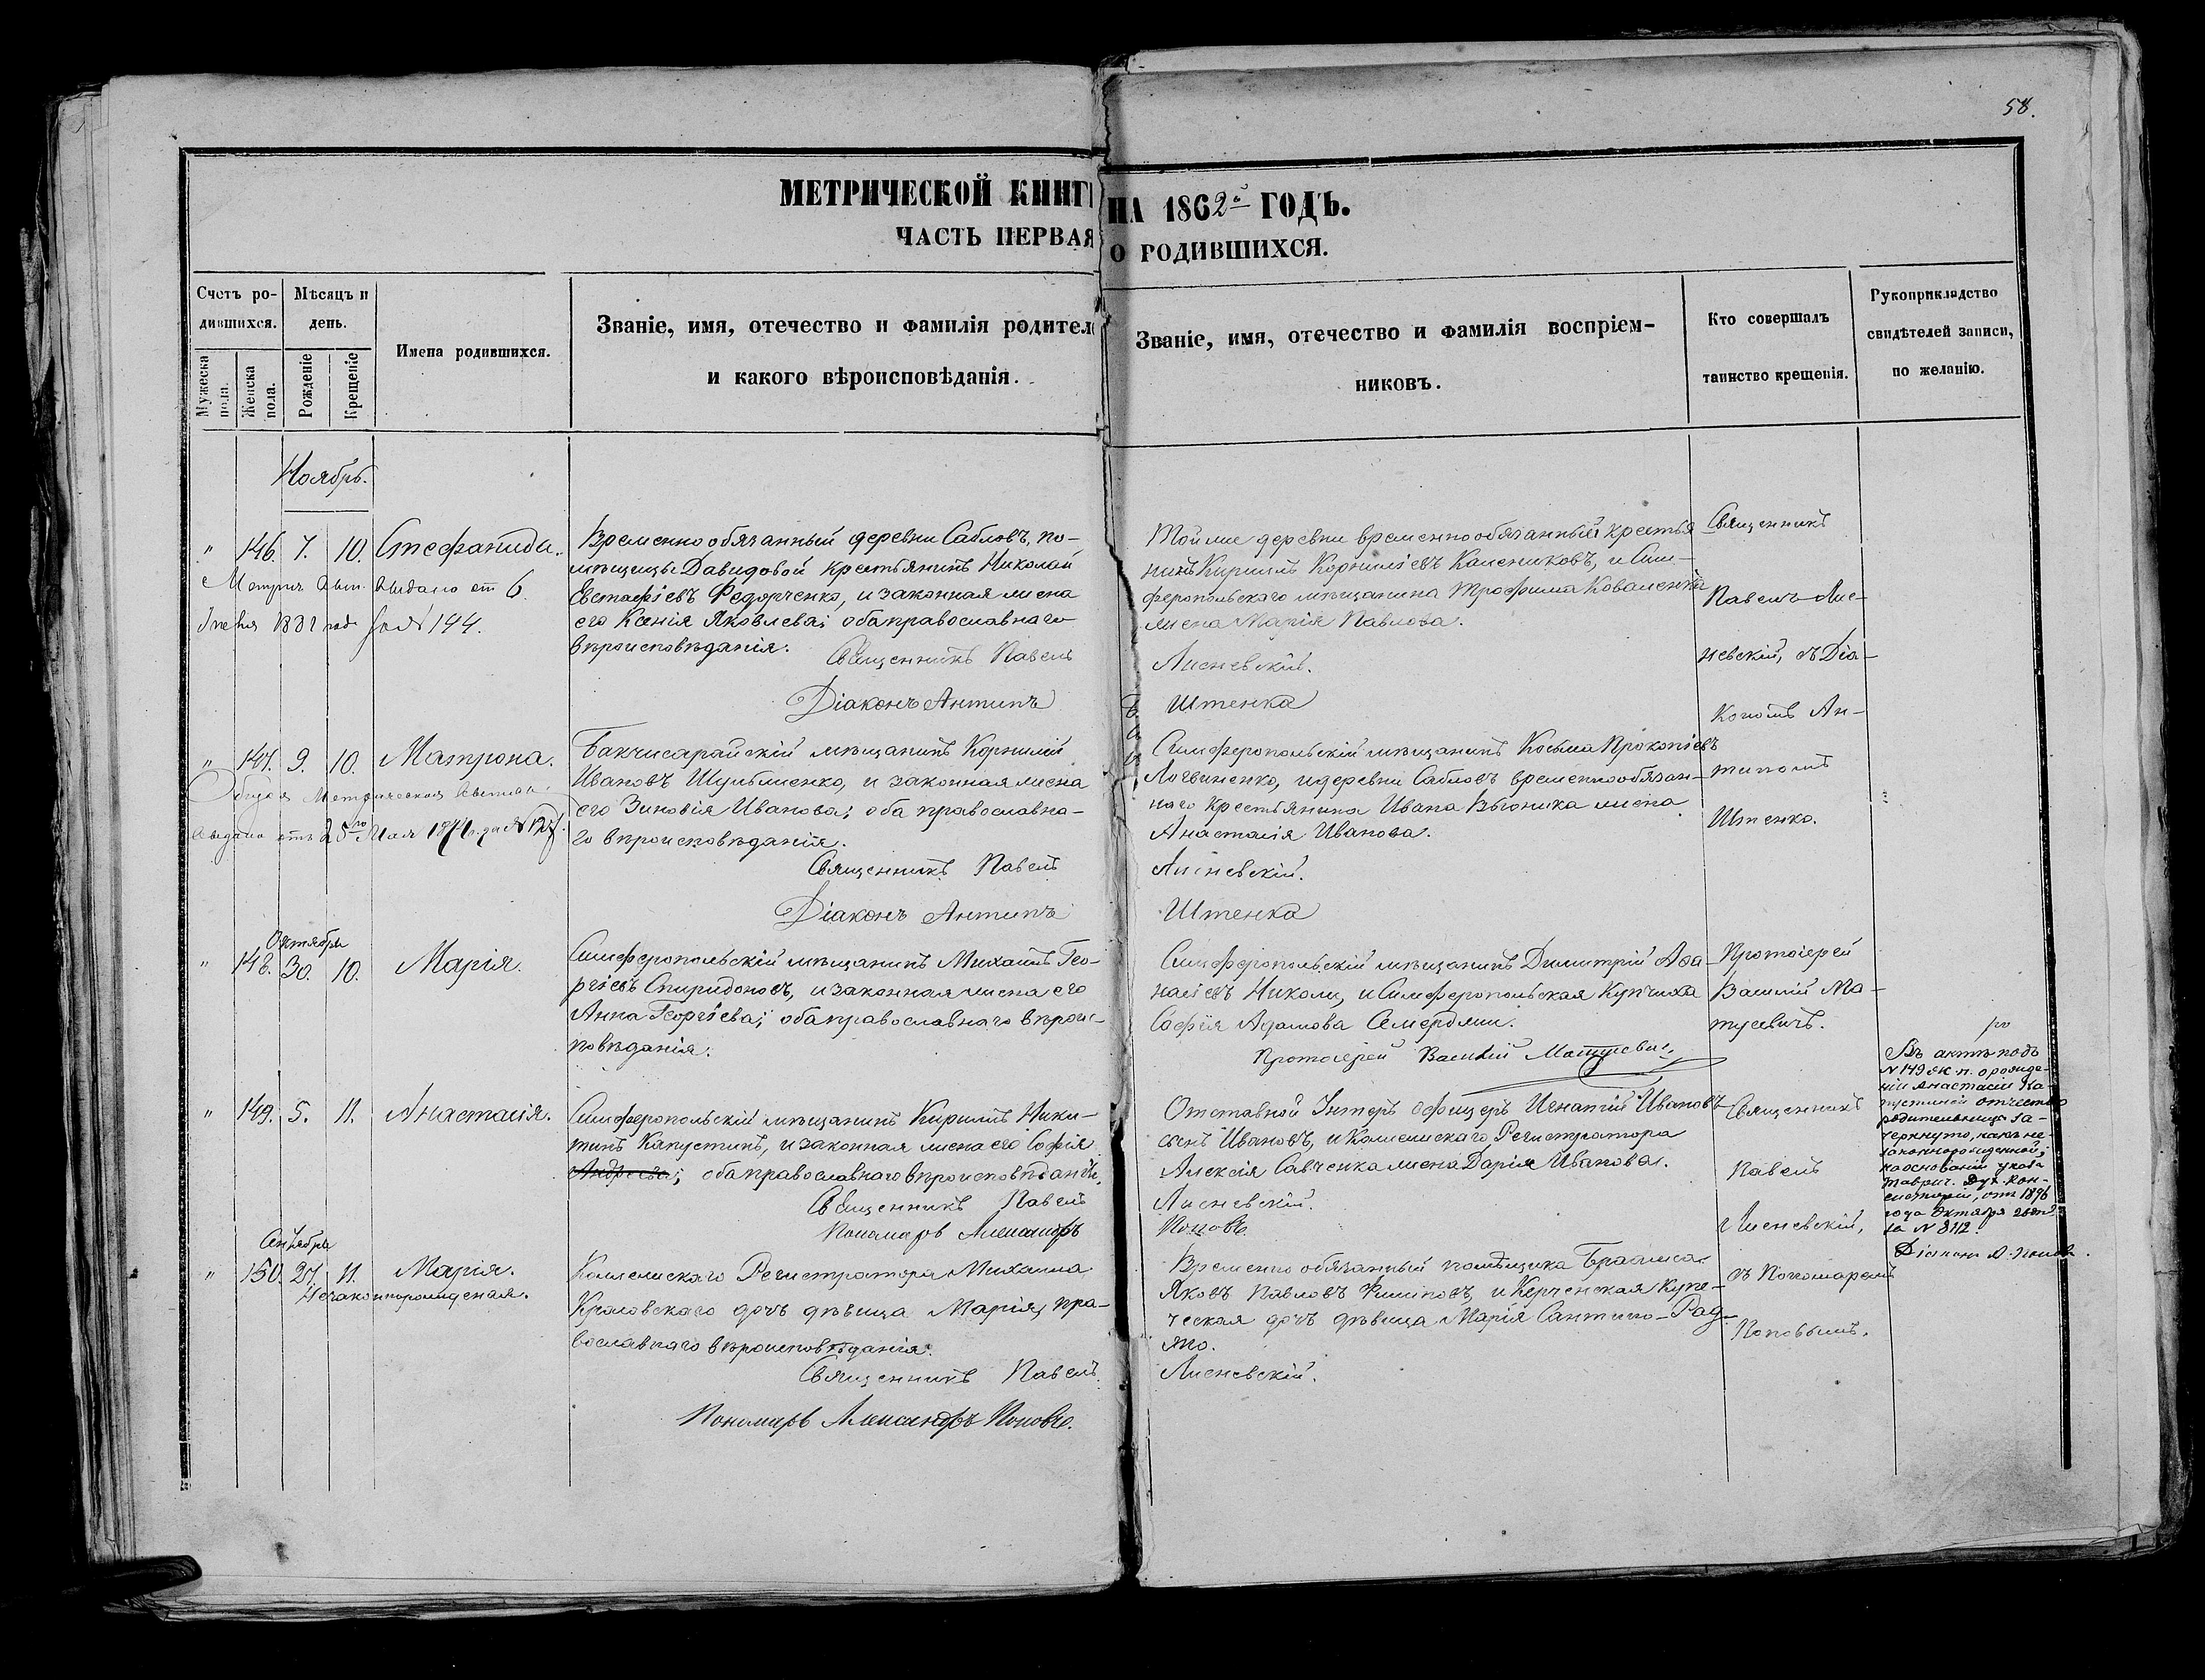 58.
МЕТРИЧЕСКОЙ КНИГИ НА 1862й ГОДЪ.
ЧАСТЬ ПЕРВАЯ О РОДИВШИХСЯ.
Счетъ ро-
дившихся.
Мужеска пола.
Женска пола.
Мѣсяцъ и
день.
Рожденіе
Крещеніе
Имена родившихся.
Званіе, имя, отечество и фамилія родител
и какого вѣроисповѣданія.
Званіе, имя, отечество и фамилія воспріем-
никовъ.
Кто совершалъ
таинство крещенія.
Рукоприкладство
свидѣтелей записи,
по желанію.
Ноябрь.
" 146. 7. 10. Стефанида.
выдано от 6
1881 года за № 144.
Временно обязанный деревни Сабловъ, по-
мѣщицы Давидовой крестьянинъ Николай
Евстафіевъ Федорченко, и законная жена
его Ксенія Яковлева; оба православнаго
вѣроисповѣданія.
Священникъ Павелъ
Діаконъ Антипъ
Тойже деревни временнообязанный крестья
нинъ Кириллъ Корниліевъ Калениковъ, и Сим-
феропольскаго мѣщанина Трофима Коваленка
жена Марія Павлова.
Лисневскій.
Штенка
Священникъ
Павелъ Лис-
невскій, съ Діа-
кономъ Ан-
типомъ
Штенко.
" 147. 9. 10. Матрона.
выдано отъ 25го Мая
Бакчисарайскій мѣщанинъ Корнилій
Ивановъ Шульженко, и законная жена
его Зиновія Иванова; оба православна-
го вѣроисповѣданія.
Священникъ Павелъ
Діаконъ Антипъ
Симферопольскій мѣщанинъ Косьма Прокопіевъ
Логвиненко, и деревни Сабловъ временнообязан-
наго крестьянина Ивана Вьюника жена
Анастасія Иванова.
Лисневскій.
Штенка
Октября
" 148. 30. 10. Марія.
Симферопольскій мѣщанинъ Михаилъ Гео-
ргіевъ Спиридоновъ, и законная жена его
Анна Георгіева; оба православнаго вѣроис-
повѣданія.
Симферопольскій мѣщанинъ Димитрій Аѳа-
насіевъ Николи, и Симферопольская Купчиха
Софія Адамова Семерджи.
Протоіерей Василій Матусевичъ
Протоіерей
Василій Ма-
тусевичъ.
" 149. 5. 11. Анастасія.
Симферопольскій мѣщанинъ Кириллъ Ники-
тинъ Капустинъ, и законная жена его Софія
Андреева; оба православнаго вѣроисповѣданія.
Священникъ Павелъ
Пономарь Александръ
Отставной Унтеръ офицеръ Игнатій Ивановъ
сынъ Ивановъ, и Коллежскаго Регистратора
Алексія Савченка жена Дарія Иванова.
Лисневскій.
Поповъ.
Священникъ
Павелъ
Лисневскій,
съ Пономаремъ
Поповымъ.
Въ актѣ подъ
№ 149 ж. п. о рожде-
ніи Анастасіи Ка-
пустиной отчество
родительницы за-
черкнуто, какъ не-
законнорожденной;
на основаніи указа
Таврич. Дух. Кон-
систоріи, отъ 1896
года Октября
за № 8112.
Діаконъ А. Поповъ.
Сентября
" 150. 27. 11. Марія.
Незаконнорожденная.
Коллежскаго Регистратора Михаила
Крыловскаго дочь дѣвица Марія, пра-
вославнаго вѣроисповѣданія.
Священникъ Павелъ
Пономарь Александръ Поповъ.
Временно обязанный помѣщика Браамса
Яковъ Павловъ Филиповъ, и Керченская Купе-
ческая дочь дѣвица Марія Сантиго-Рад-
жо.
Лисневскій.